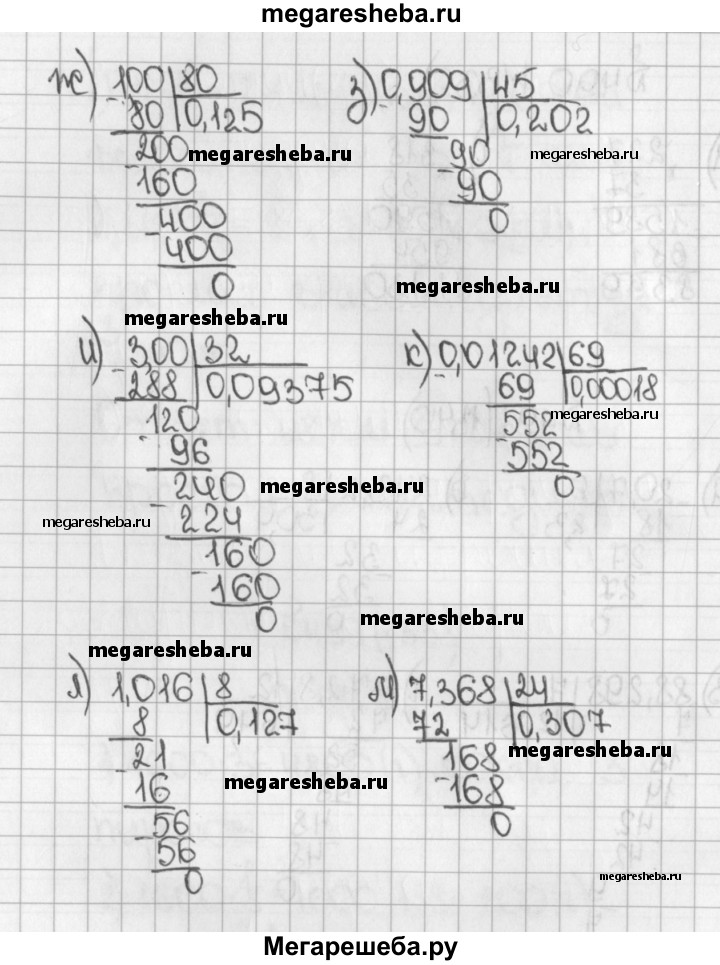 megaresheba.ru
ж) 100 | 80
- 80 | 0,125
200
megaresheba.ru
- 160
400
- 400
0
з) 0,909 | 45
- 90 | 0,202
megaresheba.ru
90
- 90
0
megaresheba.ru
megaresheba.ru
и) 3,00 | 32
- 288 | 0,09375
120
- 96
240
megaresheba.ru
megaresheba.ru
- 224
160
- 160
0
к) 0,01242 | 69
- 69 | 0,00018
552
megaresheba.ru
- 552
0
megaresheba.ru
megaresheba.ru
л) 1,016 | 8
- 8 | 0,127
21
- 16
megaresheba.ru
56
- 56
0
м) 7,368 | 24
- 72 | 0,307
168
megaresheba.ru
- 168
0
megaresheba.ru
Мегарешеба.ру